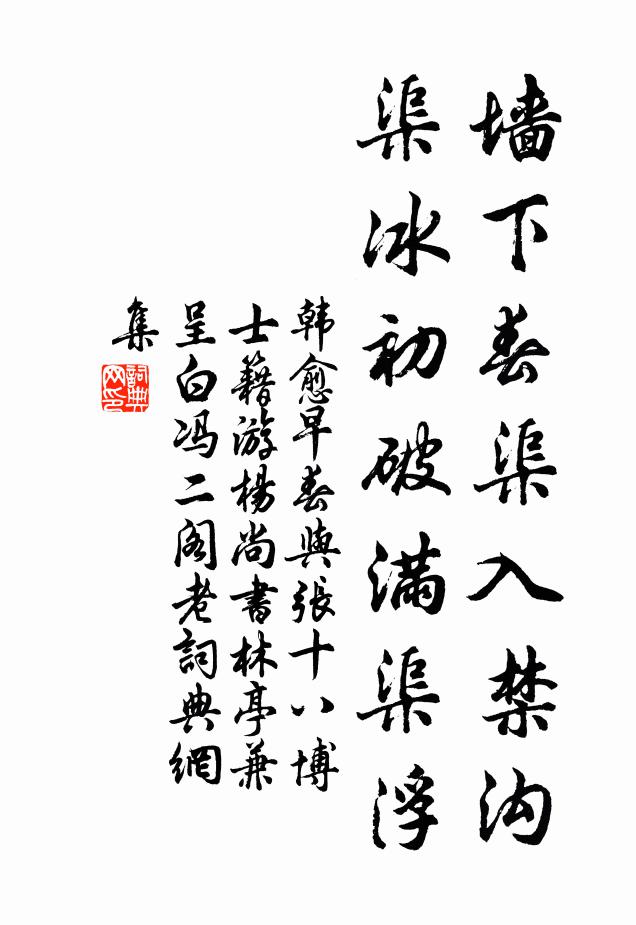 墙下春渠入禁沟
渠冰初破满渠浮
韩愈早春與張十八博
士籍游楊尚書林亭兼
呈白冯二阁老詞典網
集
詞典
网印